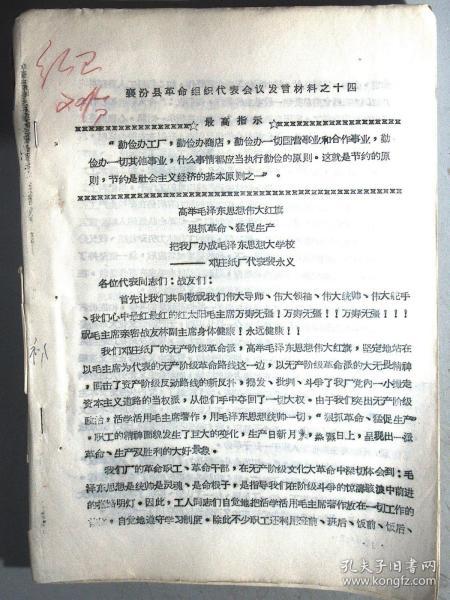 襄汾县革命组织代表会议发言材料之十四
☆最高指示☆
“勤俭办工厂，勤俭办商店，勤俭办一切国营事业和合作事业，勤
俭办一切其他事业，什么事情都应当执行勤俭的原则。这就是节约的原
则，节约是社会主义经济的基本原则之一”。
高举毛泽东思想伟大红旗
狠抓革命、猛促生产
把我厂办成毛泽东思想大学校
——邓庄纸厂代表裴永义
各位代表同志们：战友们：
首先让我们共同敬祝我们伟大导师、伟大领袖、伟大统帅、伟大舵手
、我们心中最红最红的红太阳毛主席万寿无疆！万寿无疆！！万寿无疆！！！
祝毛主席亲密战友林副主席身体健康！永远健康！！
我们邓庄纸厂的无产阶级革命派，高举毛泽东思想伟大红旗，坚定地站在
以毛主席为代表的无产阶级革命路线这一边，以无产阶级革命派的大无畏精神
，回击了资产阶级反动路线的新反扑，揭发、批判、斗争了我厂党内一小撮走
资本主义道路的当权派，从他们手中夺回了一切大权。由于我们突出无产阶级
政治，活学活用毛主席著作，用毛泽东思想统帅一切，“狠抓革命、猛促生产”
。职工的精神面貌发生了巨大的变化，生产日新月异，蒸蒸日上，呈现出一派
革命、生产双胜利的大好景象。
我们厂的革命职工、革命干部，在无产阶级文化大革命中深切体会到：毛
泽东思想是统帅是灵魂、是命根子，是指导我们在阶级斗争的惊涛骇浪中前进
的指路明灯。因此，工人同志们自觉地把活学活用毛主席著作放在一切工作的
自觉地遵守学习制度。除此不少职工还利用班前、班后、饭前、饭后、
孔夫子旧书网